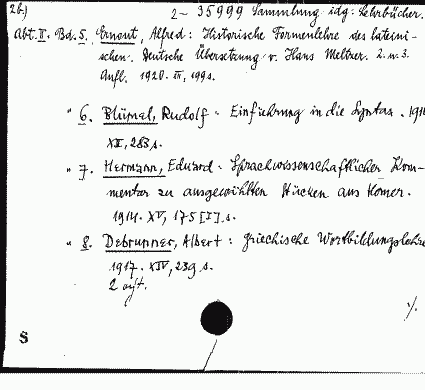 26.) 2- 35999 Sammlung idg. Lehrbücher.
Abt. II. Bd. 5. Ernout, Alfred: Historische Formenlehre des lateini-
schen. Deutsche Übersetzung v. Hans Meltzer. 2. u. 3.
Aufl. 1920. III, 199 s.
" 6. Blümel, Rudolf - Einführung in die Syntax. 191
XII, 283 s.
" 7. Hermann, Eduard - Sprachwissenschaftlicher Kom-
mentar zu ausgewählten Stücken aus Homer.
1914. XV, 175 [I] s.
" 8. Debrunner, Albert: Griechische Wortbildungslehre
1917. XIV, 239 s.
2
%.
S